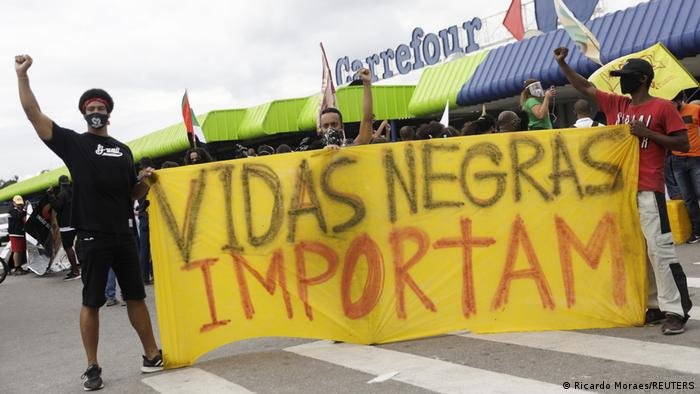 Carrefour
VIDAS NEGRAS
IMPORTAM
© Ricardo Moraes/REUTERS